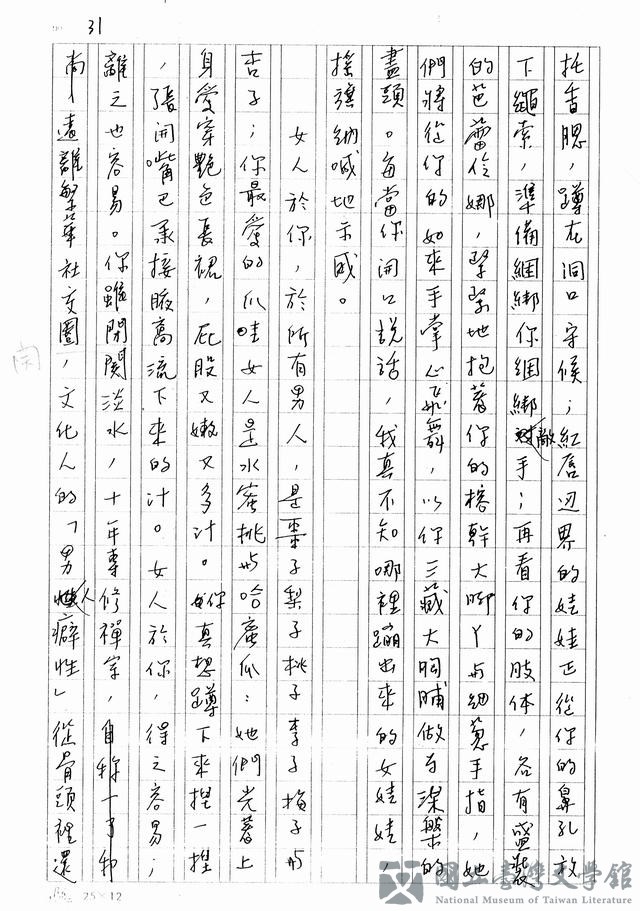 31
托香腮，蹲在洞口守候；紅唇边界的娃娃正從你的鼻孔放
下繩索，準備綑綁你綑綁敵手；再看你的肢体，各有盛裝
的芭蕾伶娜，孥孥地抱著你的榕幹大脚丫与細蔥手指，她
們將從你的如來手掌心飛舞，以你三藏大胸脯做为深槳的
盡頭。每當你開口說話，我真不知哪裡蹦出來的女娃娃，
搖旗吶喊地示威。
女人於你，於所有男人，是棗子梨子桃子李子梅子与
杏子；你最愛的爪哇女人是水蜜桃与哈蜜瓜：她們光著上
身愛穿艷色長裙，屁股又嫩又多汁。你真想蹲下來捏一捏
，張開嘴巴承接腋窩流下來的汁。女人於你，得之容易；
離之也容易。你雖閉關淡水，十年專修禪宗，自称一了和
尚，遠離繁華社交圈，文化人的「男人癖性」從骨頭裡還
関
25×12
國立臺灣文學館
National Museum of Taiwan Literature